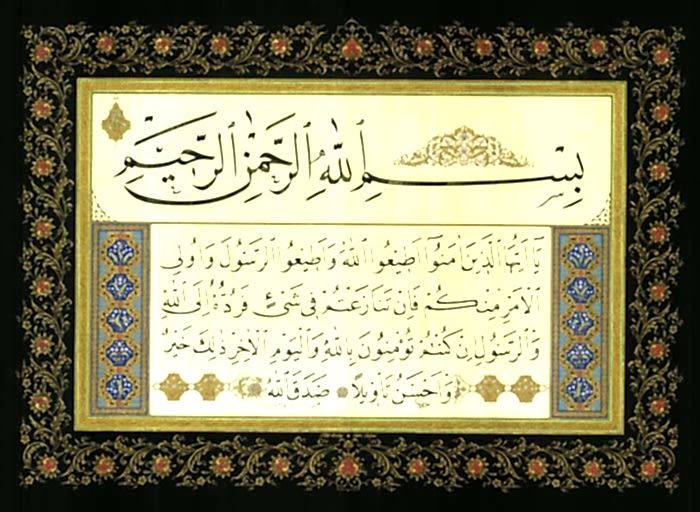 بِسْمِ اللّٰهِ الرَّحْمٰنِ الرَّحِيمِ
يَا اَيُّهَا الَّذِينَ اٰمَنُوا اَطِيعُوا اللّٰهَ وَاَطِيعُوا الرَّسُولَ وَاُولِى
الْاَمْرِ مِنْكُمْ فَاِنْ تَنَازَعْتُمْ فِى شَىْءٍ فَرُدُّوهُ اِلَى اللّٰهِ
وَالرَّسُولِ اِنْ كُنْتُمْ تُؤْمِنُونَ بِاللّٰهِ وَالْيَوْمِ الْاٰخِرِ ذٰلِكَ خَيْرٌ
وَاَحْسَنُ تَاْوِيلًا صَدَقَ اللّٰهُ